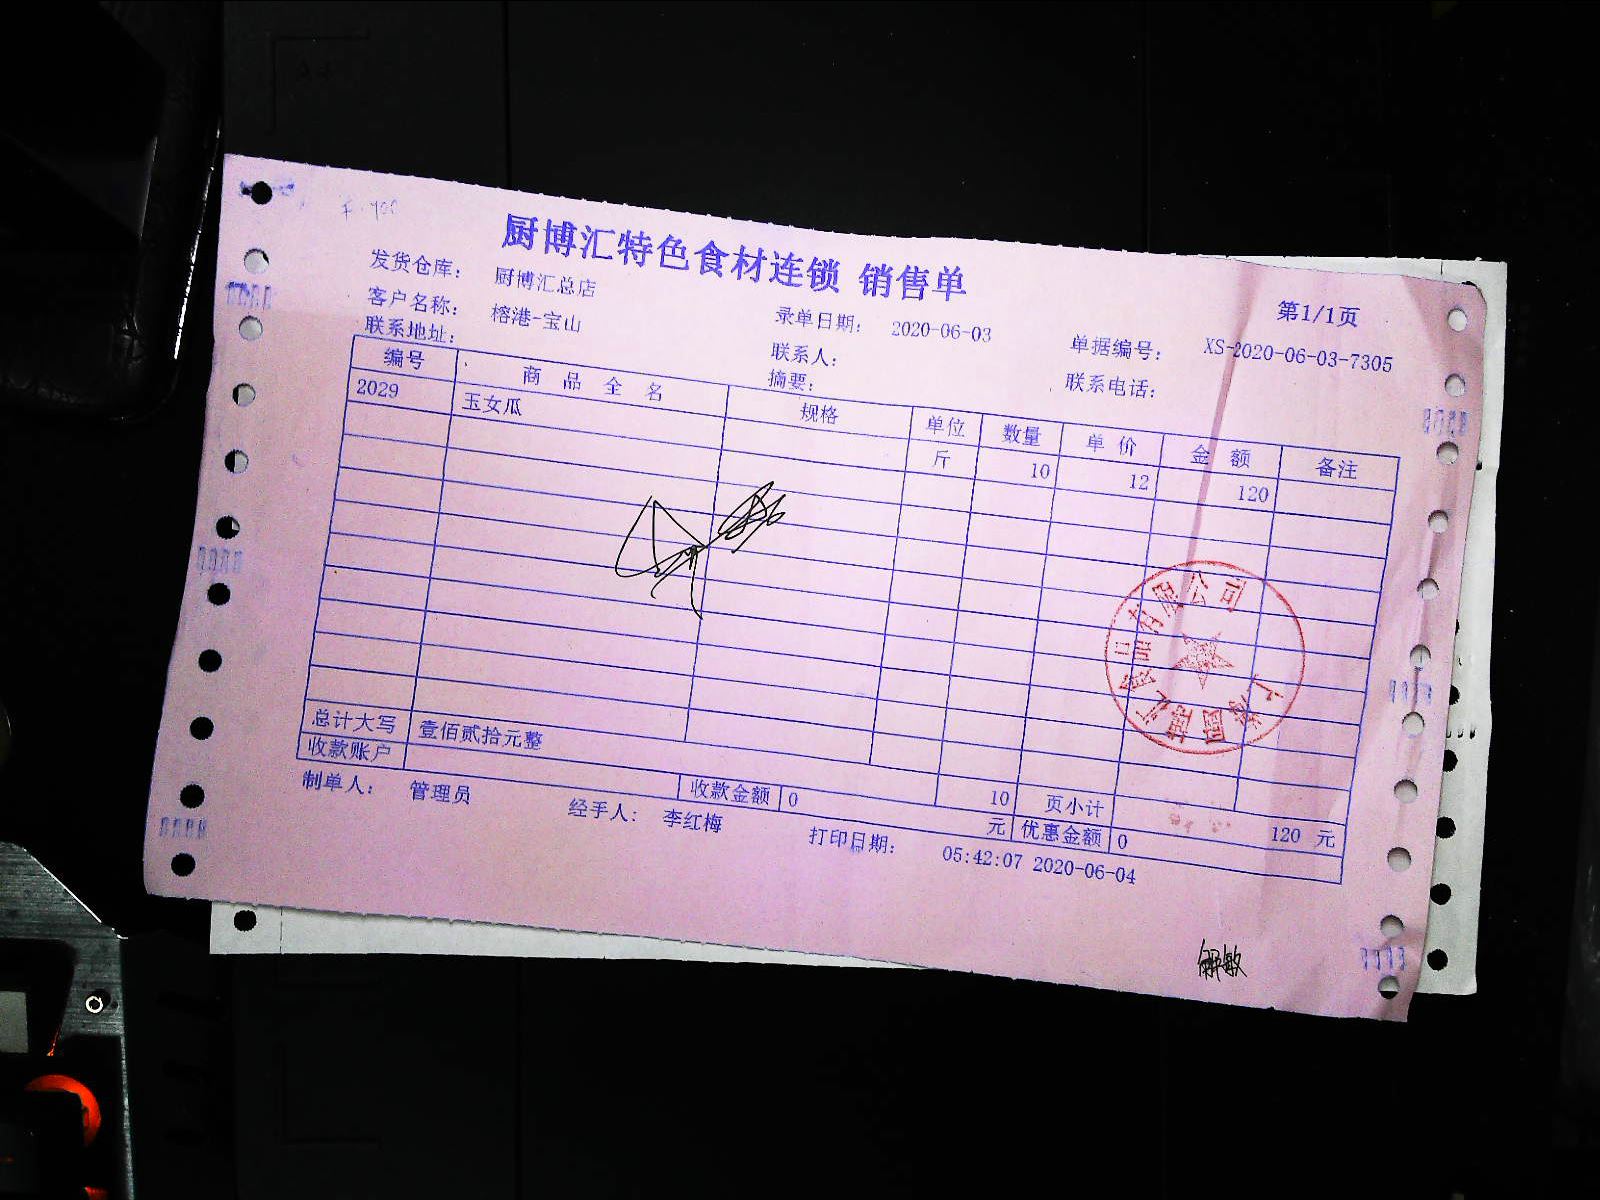 厨博汇特色食材连锁 销售单
第1/1页
发货仓库： 厨博汇总店
客户名称： 榕港-宝山 录单日期： 2020-06-03 单据编号： XS-2020-06-03-7305
联系地址： 联系人： 联系电话：
摘要：
编号 商品全名 规格 单位 数量 单价 金额 备注
2029 玉女瓜 斤 10 12 120
总计大写 壹佰贰拾元整 10 页小计 120 元
收款账户 收款金额 0 元 优惠金额 0
制单人： 管理员 经手人： 李红梅 打印日期： 05:42:07 2020-06-04
上海厨博汇食品有限公司
解敏